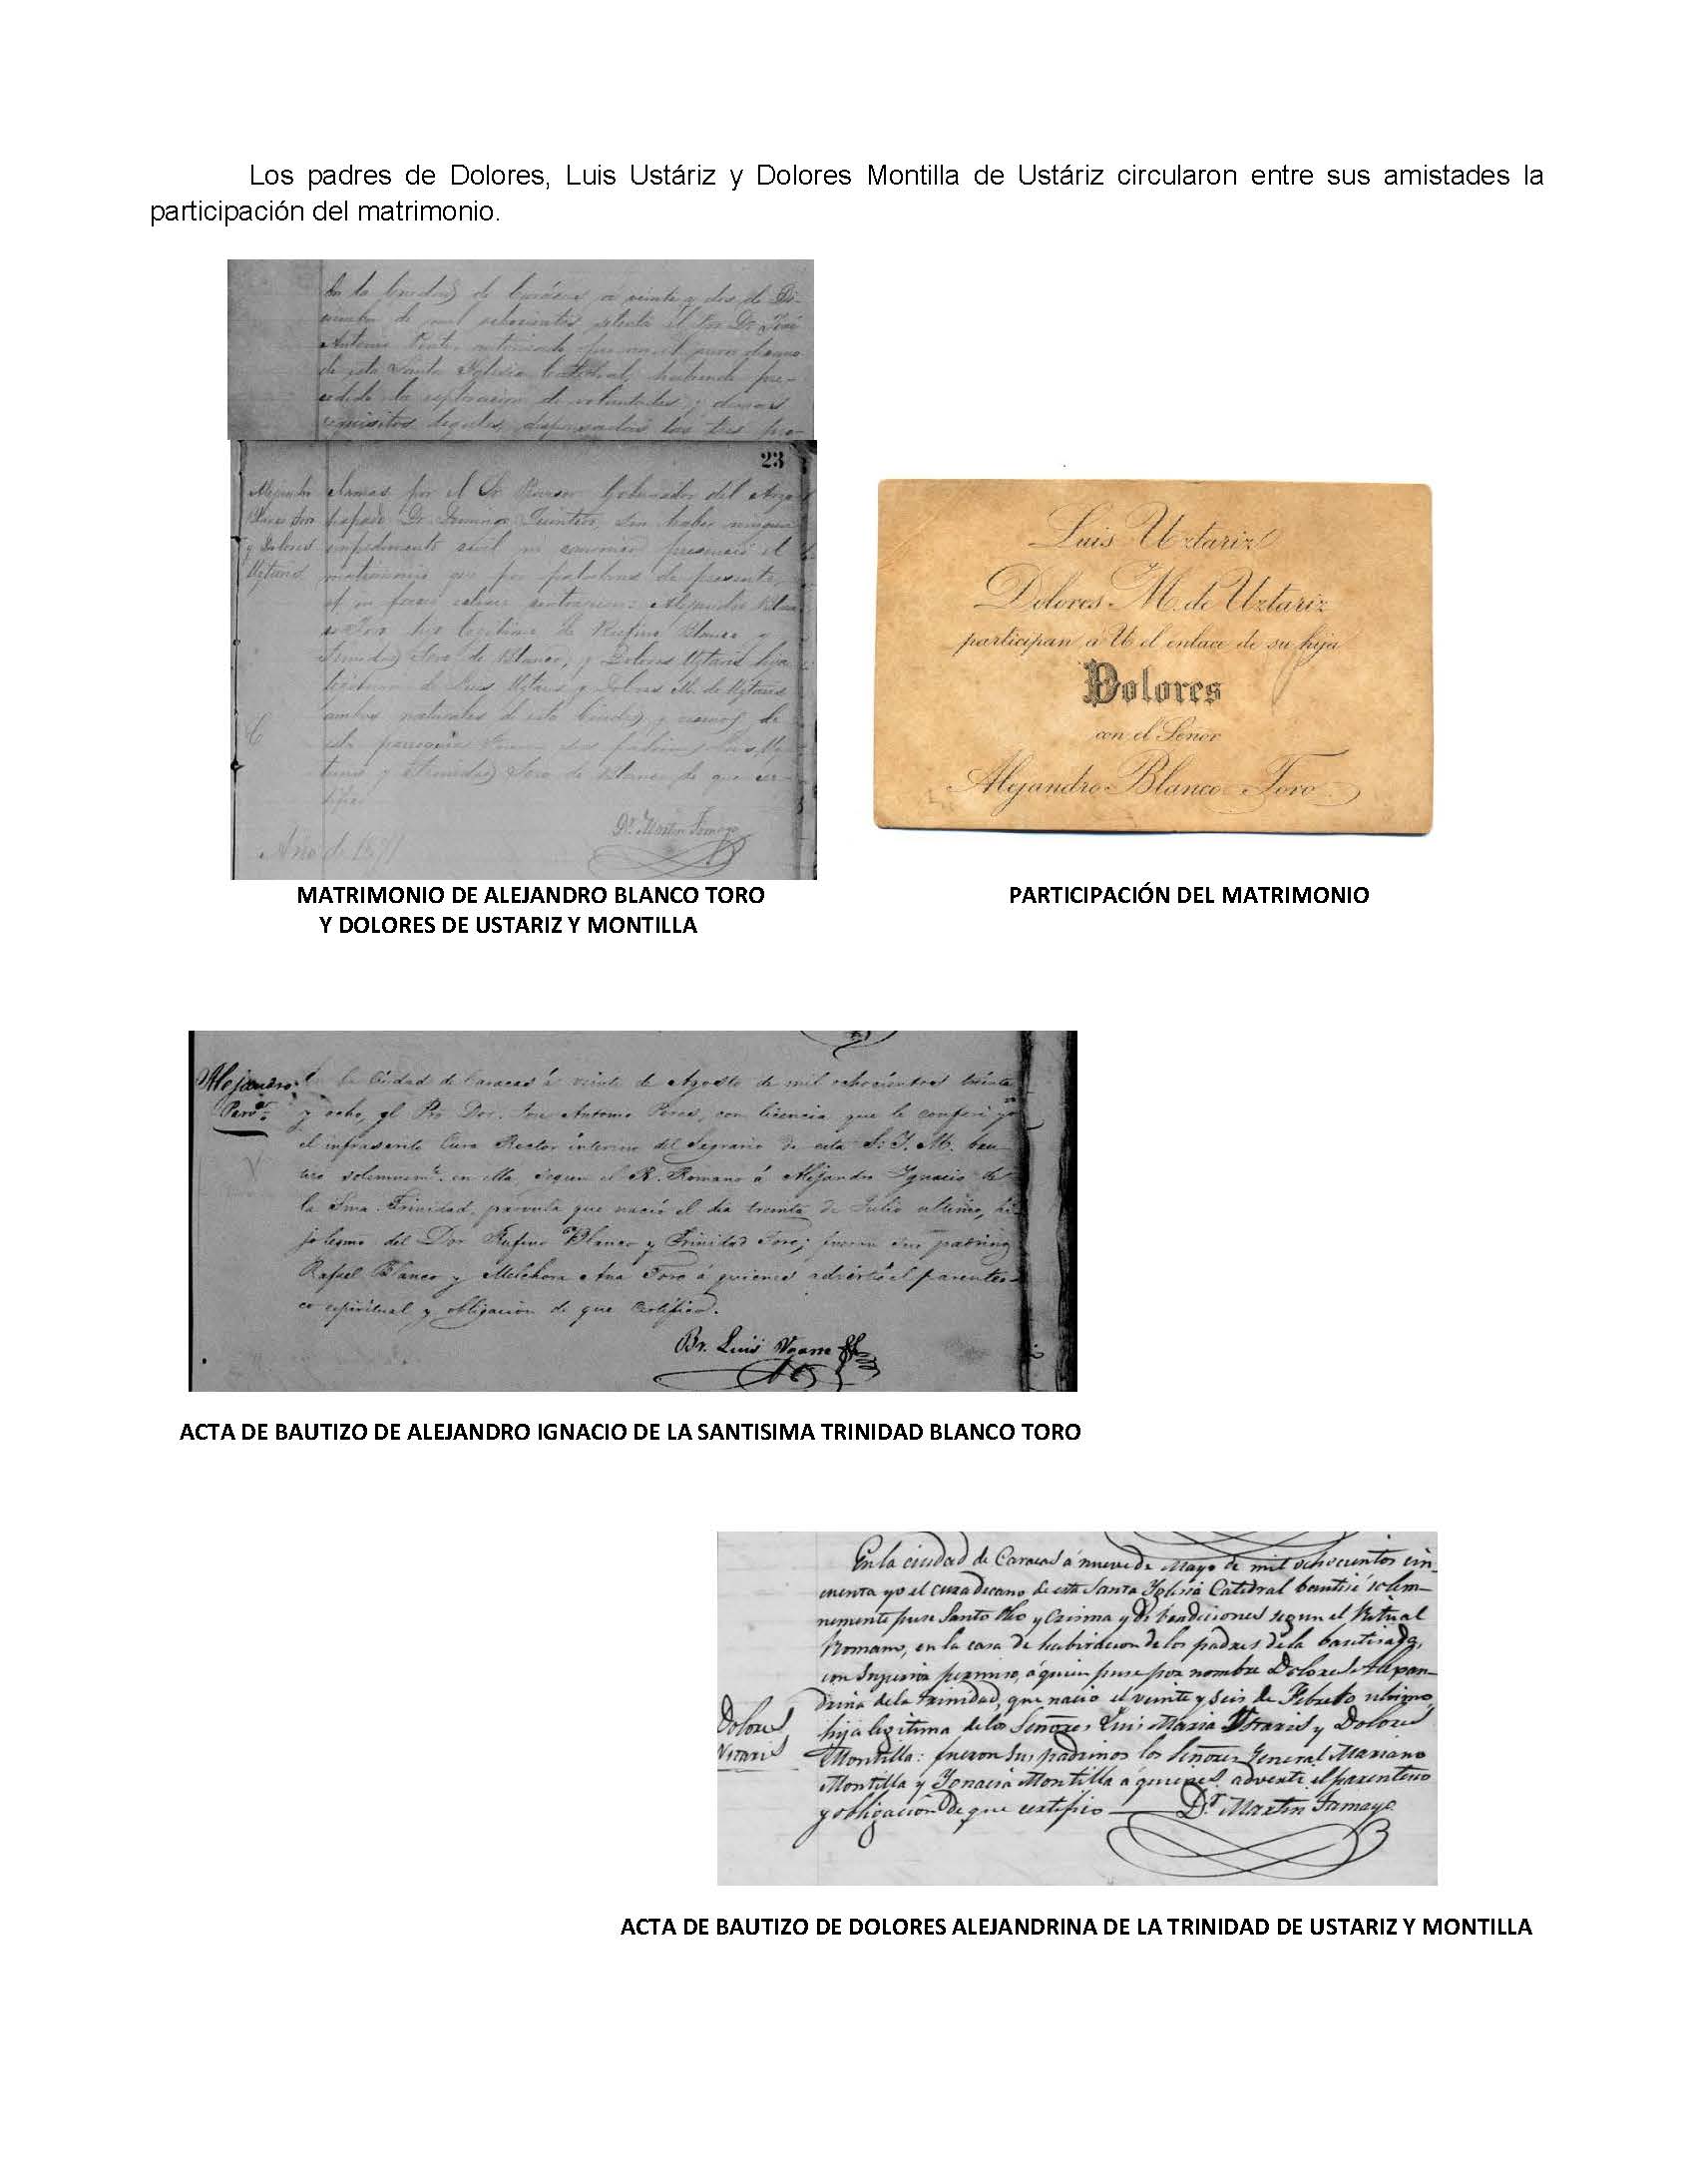 Los padres de Dolores, Luis Ustáriz y Dolores Montilla de Ustáriz circularon entre sus amistades la
participación del matrimonio.
En la Ciudad de Carácas á veinte y dos de Di-
ciembre de mil ochocientos setenta el Pro Dr José
Antonio autorizado por mi el cura decano
de esta Santa Iglesia Catedral, habiendo pre-
cedido la esploracion de voluntades y demas
requisitos legales, dispensadas las tres pro-
23
Alejandro
Blanco Toro
y Dolores
Uztariz
clamas por el Sr Provisor Gobernador del Arzo
bispado Dr Domingo Quintero, sin haber ningun
impedimento civil ni canonico presenció el
matrimonio que por palabras de presente,
contrageron: Alejandro Blan
co Toro hijo legitimo de Rufino Blanco y
Trinidad Toro de Blanco, y Dolores Uztariz hija
legitima de Luis Uztariz y Dolores M. de Uztariz
ambos naturales de esta Ciudad y vecinos de
esta parroquia Fueron sus padrinos Luis Uz-
tariz y Trinidad Toro de Blanco de que cer-
tifico
Dr. Martin Tamayo
Año de 1871
Luis Uztariz
Dolores M. de Uztariz
participan á U el enlace de su hija
Dolores
con el Señor
Alejandro Blanco Toro
MATRIMONIO DE ALEJANDRO BLANCO TORO
Y DOLORES DE USTARIZ Y MONTILLA
PARTICIPACIÓN DEL MATRIMONIO
Alejandro
En la Ciudad de Caracas á veinte de Agosto de mil ochocientos treinta
y ocho, yo el Pr. Dor. José Antonio Peres, con licencia que le conferi yo
el infrascrito Cura Rector interino del Sagrario de esta S. I. M. bau-
tizó solemnemte. en ella, segun el R. Romano á Alejandro Ignacio de
la Sma. Trinidad, parvulo que nació el dia treinta de Julio ultimo, hi-
jo legmo del Dor Rufino Blanco y Trinidad Toro; fueron sus padrinos
Rafael Blanco y Melchora Ana Toro á quienes advirtió el parentes-
co espiritual y obligacion de que certifico.
Br. Luis
ACTA DE BAUTIZO DE ALEJANDRO IGNACIO DE LA SANTISIMA TRINIDAD BLANCO TORO
En la ciudad de Caracas á nueve de Mayo de mil ochocientos cin-
cuenta yo el cura decano de esta Santa Iglesia Catedral bautisé solem-
nemente puse Santo Oleo y Crisma y di bendiciones segun el Ritual
Romano, en la casa de habitacion de los padres de la bautisada,
con Superior permiso, á quien puse por nombre Dolores Alejan-
drina de la Trinidad, que nacio el veinte y seis de Febrero ultimo,
Dolores
Ustaris
hija legitima de los Señores Luis Maria Ustaris y Dolores
Montilla: fueron sus padrinos los Señores General Mariano
Montilla y Ignacia Montilla á quienes advertí el parentesco
y obligacion de que certifico — Dr. Martin Tamayo
ACTA DE BAUTIZO DE DOLORES ALEJANDRINA DE LA TRINIDAD DE USTARIZ Y MONTILLA